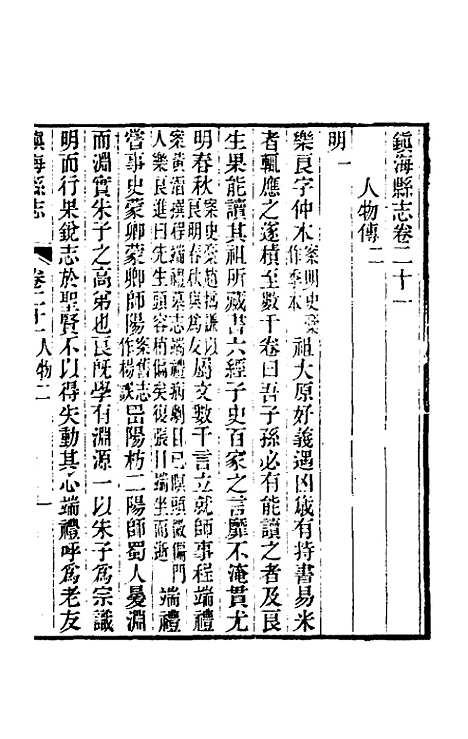 鎮海縣志卷二十一
人物傳二
明一
樂良字仲本案明史藁作季本祖大原好義遇凶歲有持書易米
者輒應之遂積至數千卷曰吾子孫必有能讀之者及良
生果能讀其祖所藏書六經子史百家之言靡不淹貫尤
明春秋案史藁趙撝謙以良明春秋與為友屬文數千言立就師事程端禮
案黃溍撰程端禮墓志端禮病劇目已瞑頭微偏門人樂良進曰先生頭容稍偏矣復張目端坐而逝端禮
嘗事史蒙卿蒙卿師陽案舊志作楊誤嵒陽朽二陽師蜀人㬊淵
而淵實朱子之高弟也良旣學有淵源一以朱子為宗識
明而行果銳志於聖賢不以得失動其心端禮呼為老友
鎮海縣志
卷二十一
人物二
一